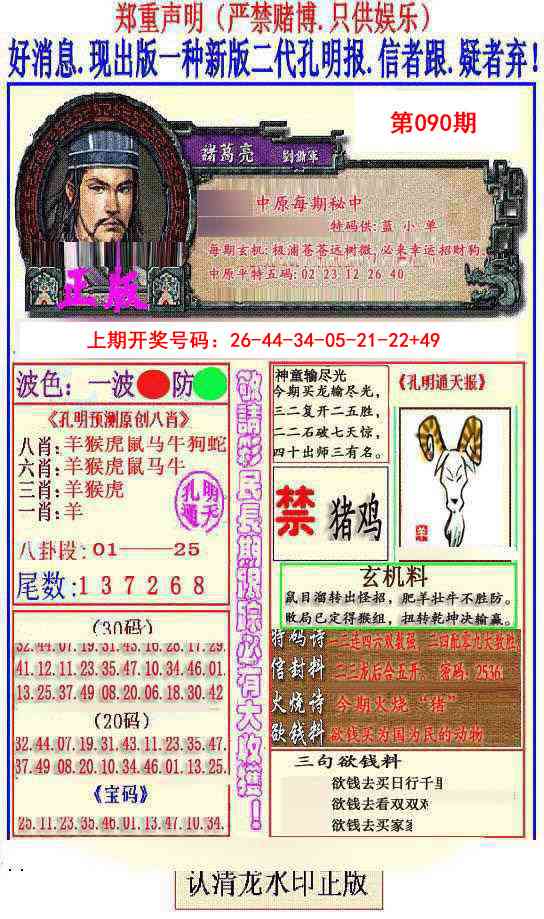 郑重声明（严禁赌博.只供娱乐）
好消息.现出版一种新版二代孔明报.信者跟.疑者弃！
第090期
諸葛亮 劉諧軍
中原每期秘中
特码供:蓝 小 单
每期玄机:极浦苍苍远树微,必来幸运招财狗.
中原平特五码:02 23 12 26 40
正版
上期开奖号码：26-44-34-05-21-22+49
波色：一波 防
《孔明预测原创八肖》
八肖:羊猴虎鼠马牛狗蛇
六肖:羊猴虎鼠马牛
三肖:羊猴虎
一肖:羊
孔明
通天
八卦段：01——25
尾数:137268
敬請彩民長期跟踪必有大收獲！
神童输尽光
今期买龙输尽光,
三二复开二五胜,
二二石破七天惊,
四十出师三有名。
《孔明通天报》
禁 猪鸡
羊
玄机料
鼠目溜转出怪招，肥羊壮牛不胜防。
败局已定得猴组，扭转乾坤决输赢。
特码诗 一三连四六双数强、二四配零九大数胜
信封料 二三龙后合五开、密码：2536.
火烧诗 今期火烧“猪”
欲钱料 欲钱买为国为民的动物
(30码)
32.44.07.19.31.43.16.28.17.29.
41.12.11.23.35.47.10.34.46.01.
13.25.37.49.08.20.06.18.30.42
(20码)
32.44.07.19.31.43.11.23.35.47.
37.49.08.20.10.34.46.01.13.25.
《宝码》
25.11.23.35.46.01.13.47.10.34.
三句欲钱料
欲钱去买日行千里
欲钱去看双双对
欲钱去买家
认清龙水印正版